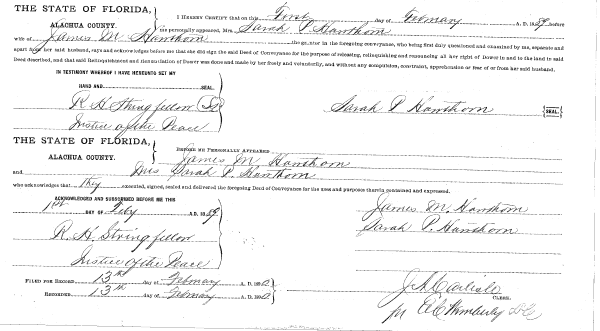 THE STATE OF FLORIDA,
I HEREBY CERTIFY that on this First day of February A. D. 1889, before
ALACHUA COUNTY.
me personally appeared, Mrs. Sarah P Hawthorn
wife of James M Hawthorn the grantor in the foregoing conveyance, who being first duly questioned and examined by me, separate and
apart from her said husband, says and acknowledges before me that she did sign the said Deed of Conveyance for the purpose of releasing, relinquishing and renouncing all her right of Dower in and to the land in said
Deed described, and that said Relinquishment and Renunciation of Dower was done and made by her freely and voluntarily, and without any compulsion, constraint, apprehension or fear of or from her said husband.
IN TESTIMONY WHEREOF I HAVE HEREUNTO SET MY
HAND AND SEAL.
R H Stringfellow
Sarah P Hawthorn SEAL.
Justice of the Peace
THE STATE OF FLORIDA,
BEFORE ME PERSONALLY APPEARED
ALACHUA COUNTY.
James M Hawthorn
and Mrs Sarah P. Hawthorn
who acknowledges that they executed, signed, sealed and delivered the foregoing Deed of Conveyance for the uses and purposes therein contained and expressed.
ACKNOWLEDGED AND SUBSCRIBED BEFORE ME THIS
1st DAY OF Feby A. D. 1889
James M. Hawthorn
R. H. Stringfellow
Sarah P. Hawthorn
Justice of the Peace
FILED FOR RECORD 13th day of February A. D. 18
RECORDED 13th day of February A. D. 18
J A Carlisle
CLERK.
pr Wimberly DC